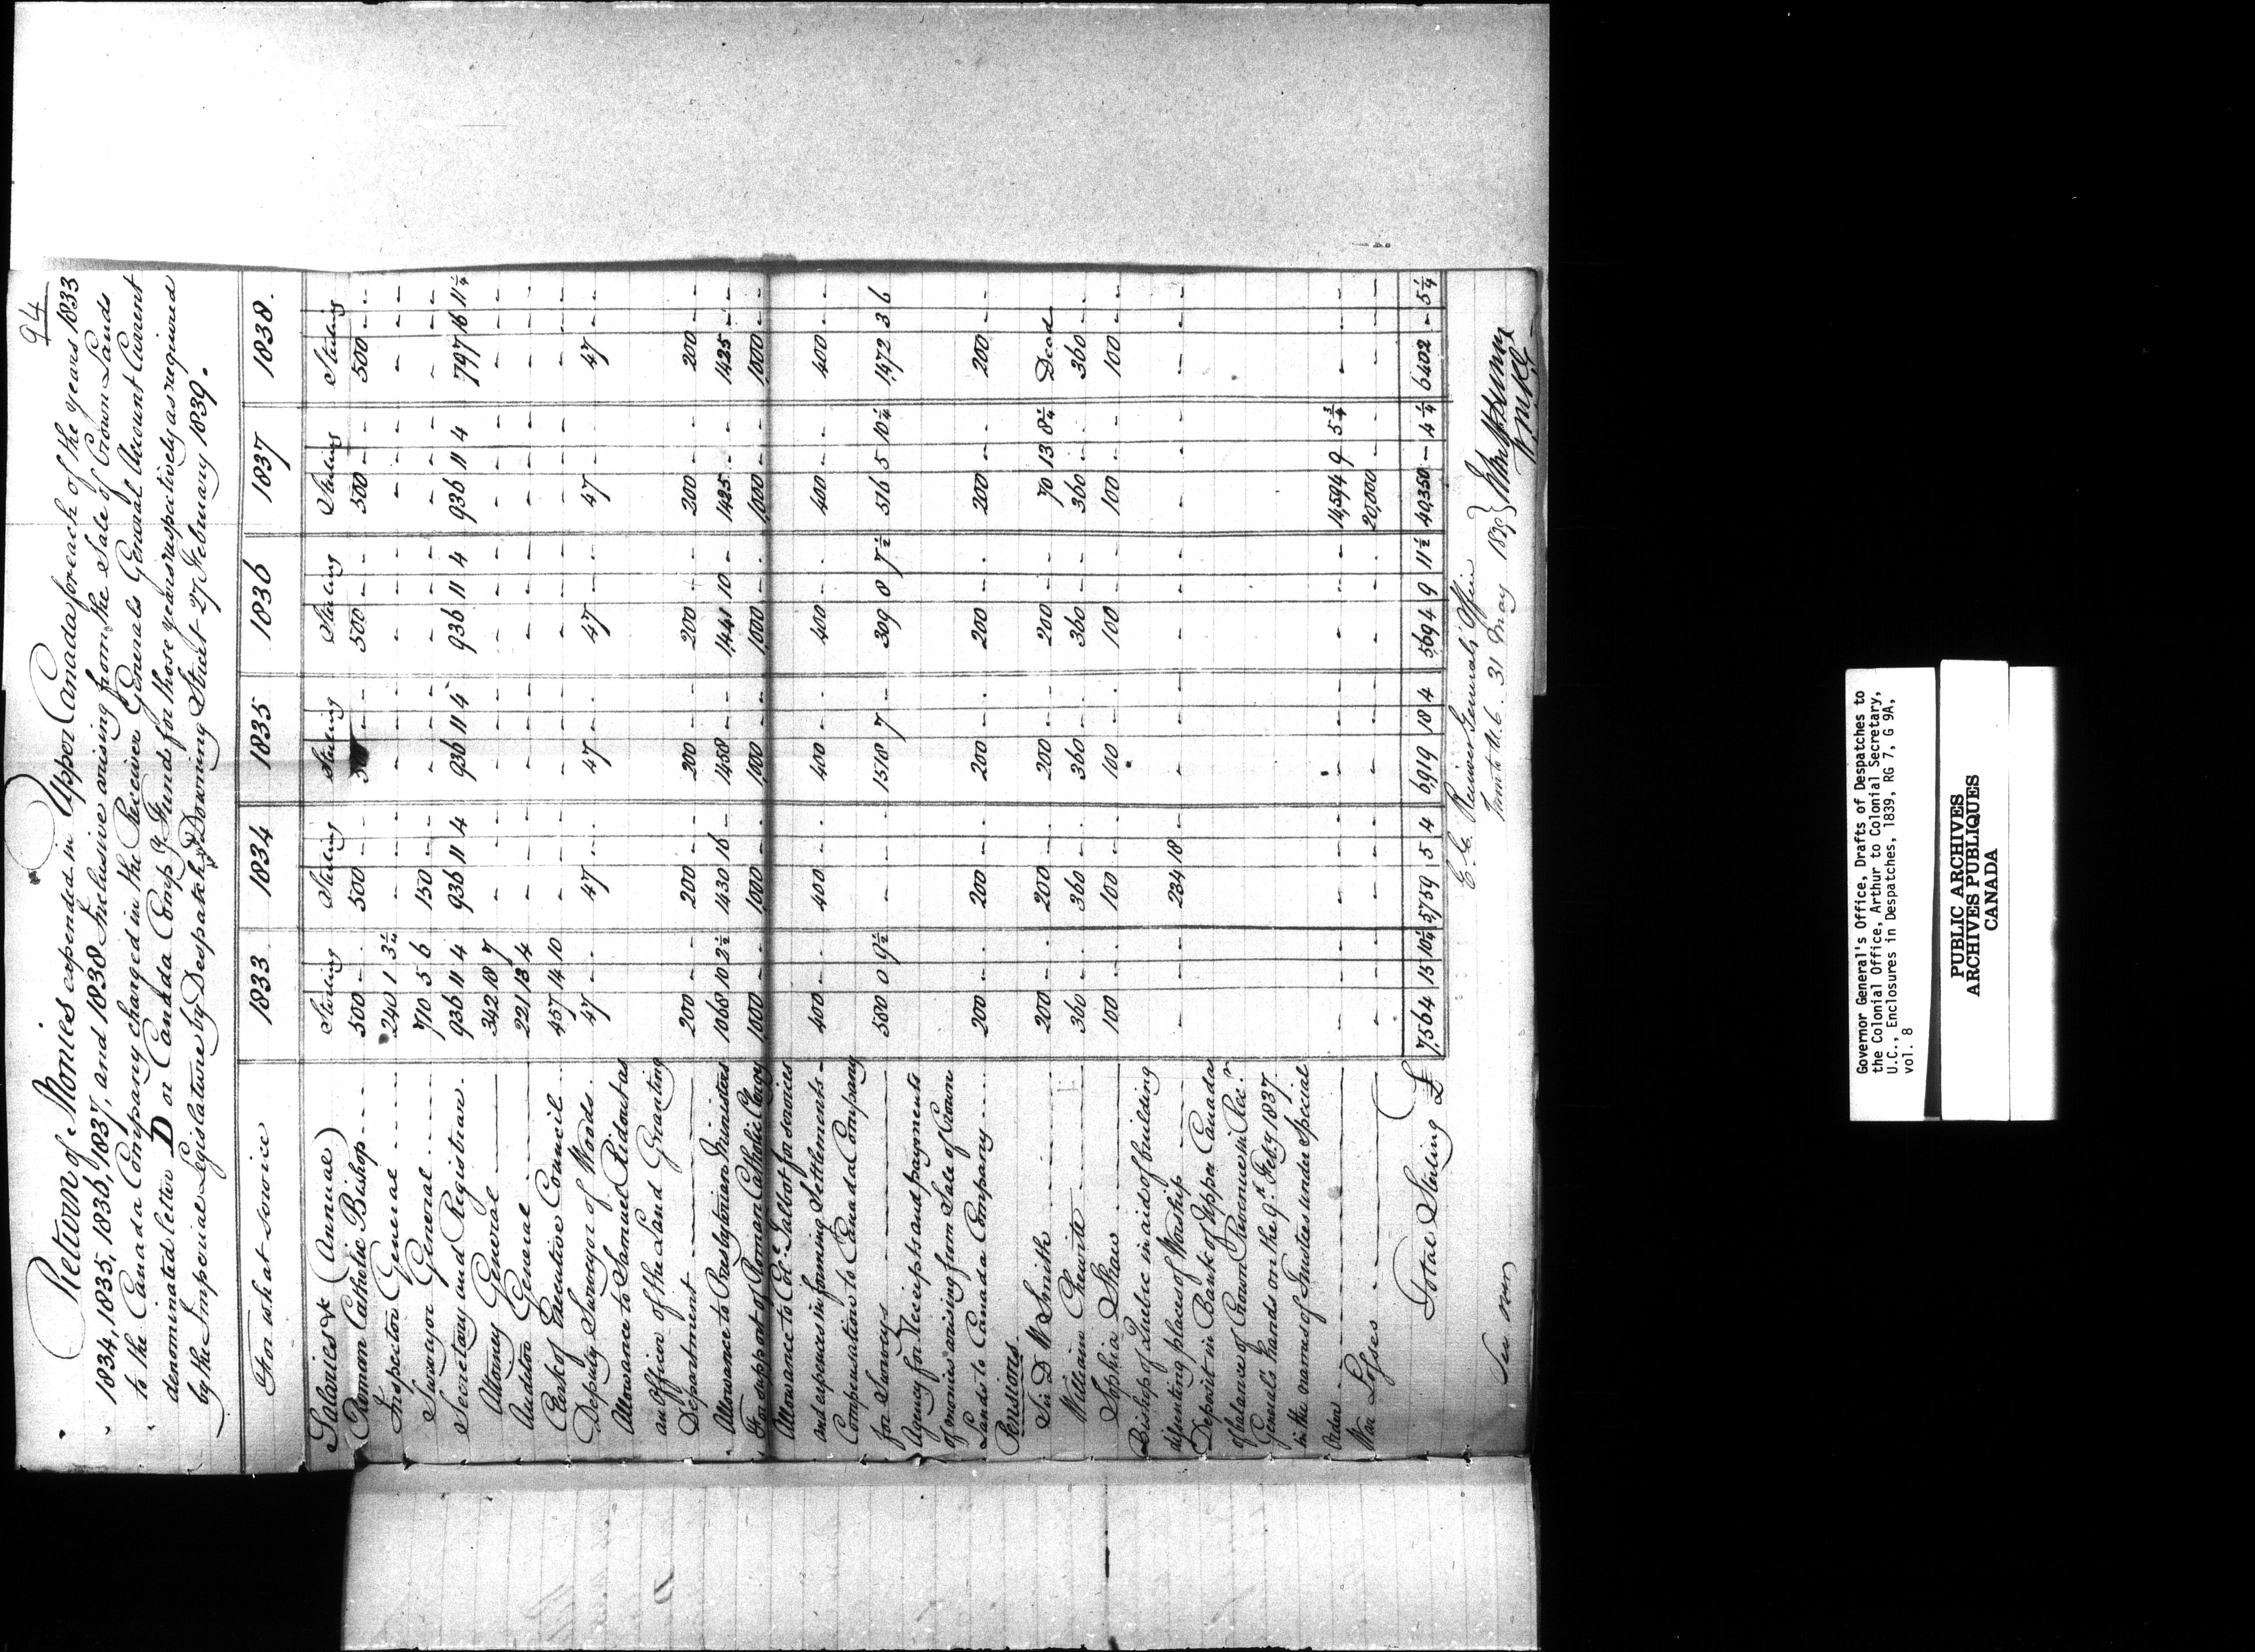 94
Return of Monies expended in Upper Canada for each of the years 1833
1834, 1835, 1836, 1837, and 1838 Inclusive arising from the Sale of Crown Lands
to the Canada Company charged in the Receiver Generals General Account Current
denominated letter D or Canada Comp.y Fund for those years respectively as required
by the Imperial Legislature by Despatch Downing Street 27 February 1839.
For what service 1833 1834 1835 1836 1837 1838.
Sterling Sterling Sterling Sterling Sterling Sterling
Salaries & (Annual)
Roman Catholic Bishop 500 - - 500 - - 500 - - 500 - - 500 - - 500 - -
Inspector General 240 1 3¼ - - - - - - - - - - - - - - -
Surveyor General 710 5 6 150 - - - - - - - - - - - - - -
Secretary and Registrar 936 11 4 936 11 4 936 11 4 936 11 4 936 11 4 797 16 11¼
Attorney General 342 18 7 - - - - - - - - - - - - - - -
Auditor General 221 13 4 - - - - - - - - - - - - - - -
Clerk of Executive Council 457 14 10 - - - - - - - - - - - - - - -
Deputy Surveyor of Woods 47 - - 47 - - 47 - - 47 - - 47 - - 47 - -
Allowance to Samuel Ridout as
an Officer of the Land Granting
Department 200 - - 200 - - 200 - - 200 - - 200 - - 200 - -
Allowance to Presbyterian Ministers 1068 10 2½ 1430 16 - 1458 - - 1441 10 - 1425 - - 1425 - -
For support of Roman Catholic Clergy 1000 - - 1000 - - 1000 - - 1000 - - 1,000 - - 1000 - -
Allowance to Col. Talbot for services
and expences in forming Settlements 400 - - 400 - - 400 - - 400 - - 400 - - 400 - -
Compensation to Canada Company
for Surveys 580 0 9½ - - - 1518 7 - 309 8 7½ 516 5 10¼ 1,472 3 6
Agency for Receipts and payments
of monies arising from Sale of Crown
Lands to Canada Company 200 - - 200 - - 200 - - 200 - - 200 - - 200 - -
Pensions
Sir D. W. Smith 200 - - 200 - - 200 - - 200 - - 70 13 8¼ Dead
William Chewitt 360 - - 360 - - 360 - - 360 - - 360 - - 360 - -
Sophia Shaw 100 - - 100 - - 100 - - 100 - - 100 - - 100 - -
Bishop of Quebec in aid of building
different places of Worship - - - 234 18 - - - - - - - - - - - - -
Deposit in Bank of Upper Canada
of balance of Crown Revenue in Rec.r
Generals hands on the 9th Feby 1837
in the names of Trustees under Special
Order - - - - - - - - - - - - 14,594 9 5¾ - - -
War Losses - - - - - - - - - - - - 20,000 - - - - -
Total Sterling £ 7,564 15 10¼ 5759 5 4 6,919 18 4 5,694 9 11½ 40,350 - 4¼ 6402 - 5¼
E. E. Receiver Generals Office
Toronto U.C. 31 May 1839
See over
Governor General's Office, Drafts of Despatches to
the Colonial Office, Arthur to Colonial Secretary,
U.C., Enclosures in Despatches, 1839, RG 7, G 9A,
vol. 8
PUBLIC ARCHIVES
ARCHIVES PUBLIQUES
CANADA